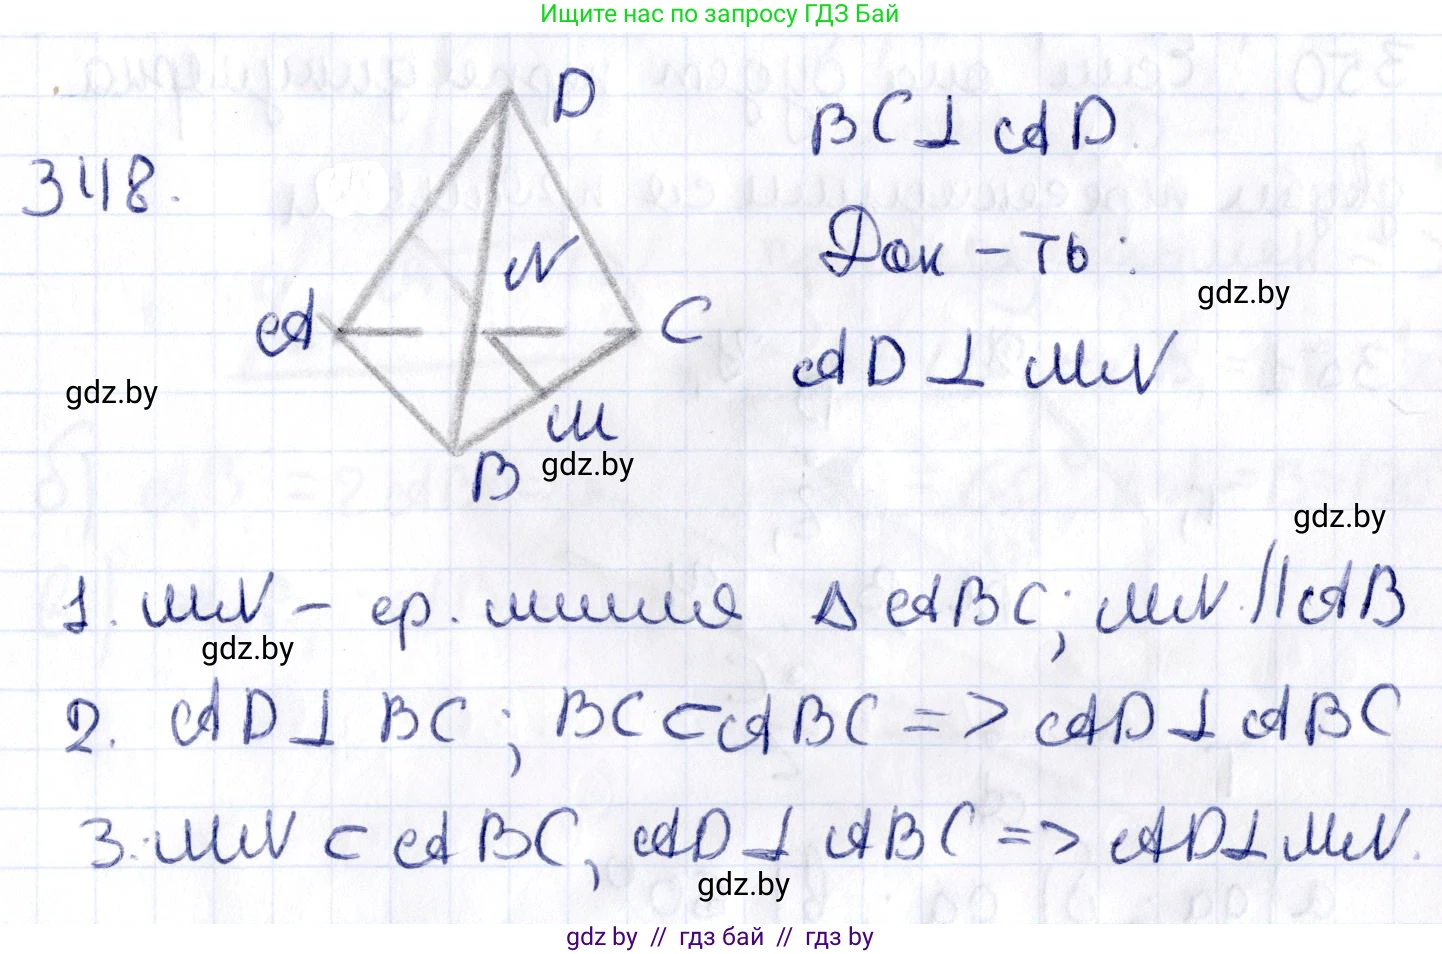 Ищите нас по запросу ГДЗ Бай
348.
D
A
N
C
M
B
BC ⊥ AD
Док-ть:
gdz.by
AD ⊥ MN
gdz.by
gdz.by
gdz.by
1. MN – ср. линия △ ABC; MN || AB
gdz.by
2. AD ⊥ BC; BC ⊂ ABC => AD ⊥ ABC
3. MN ⊂ ABC, AD ⊥ ABC => AD ⊥ MN.
gdz.by
gdz by // гдз бай // гдз by